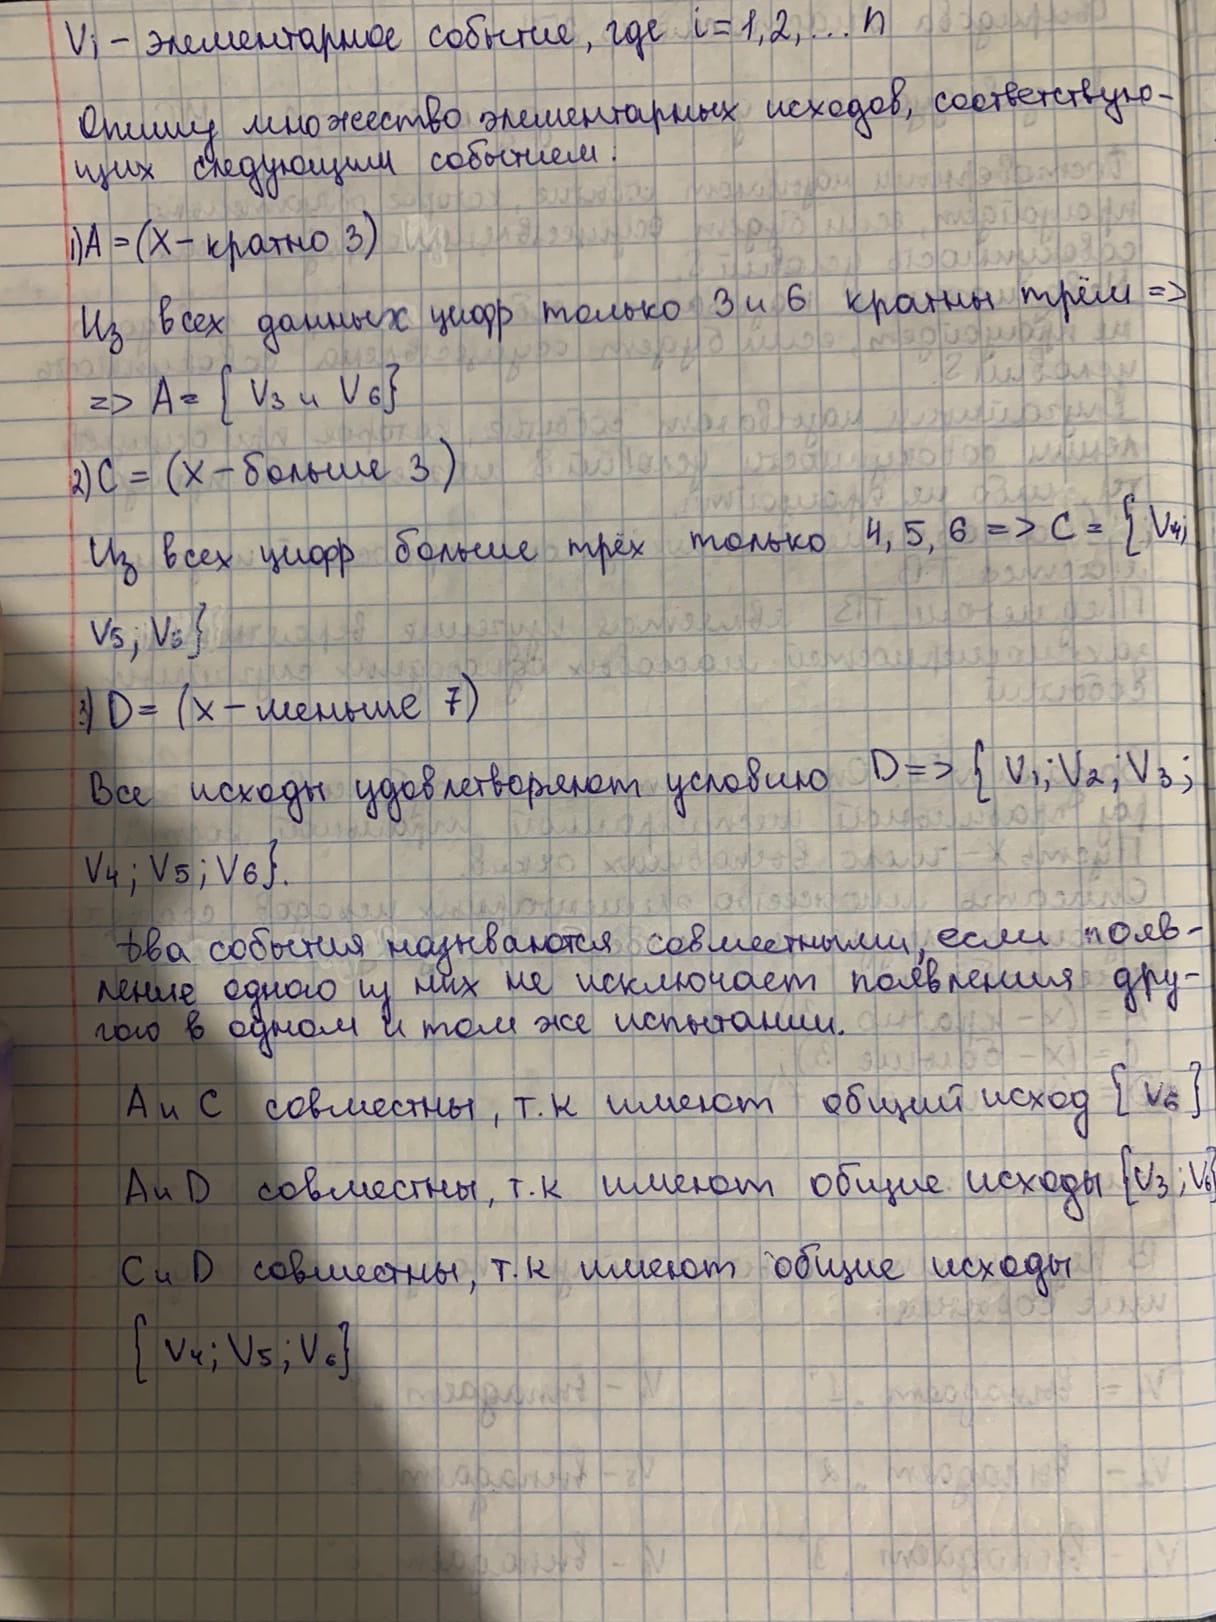 Vi – элементарное событие, где i=1,2,...n
Опишу множество элементарных исходов, соответствую-
щих следующим событием:
1) A = (X – кратно 3)
Из всех данных цифр только 3 и 6 кратны трём =>
=> A = { V3 и V6}
2) C = (X – больше 3)
Из всех цифр больше трёх только 4, 5, 6 => C = { V4;
V5; V6}
3) D = (X – меньше 7)
Все исходы удовлетворяют условию D => { V1; V2; V3;
V4; V5; V6}.
Два события называются совместными, если появ-
ление одного из них не исключает появления дру-
гого в одном и том же испытании.
A и C совместны, т.к имеют общий исход { V6 }
A и D совместны, т.к имеют общие исходы {V3; V6}
C и D совместны, т.к имеют общие исходы
{ V4; V5; V6}